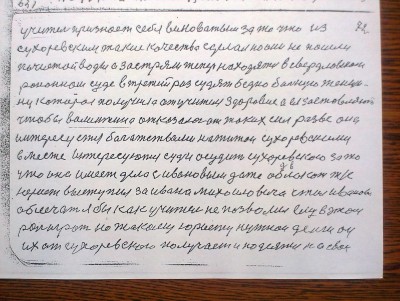 63)
учител признает себя виноватым за то что из
сухоревским такие качество сделал но они не пошли
по чистой воды а застрям теперь находяти в свердловском
районном суде в третий раз судят бедно больную женщи-
ну которая получила от учителя здоровие а её заставляют
чтобы валинтина отказалась от таких сил разве она
интересу стя богатствами нажитой сухоревскими
вместе интересуюти суди осудит сухоревского за то
что она имеет дела с ивановым дате области так
юрист выступил за ивана михоиловича стал иванова
облечат я бы как учител не позволил ему в этом
розыграт но такому юристу нужной делги он
их от сухоревского получает и поделяти на свои